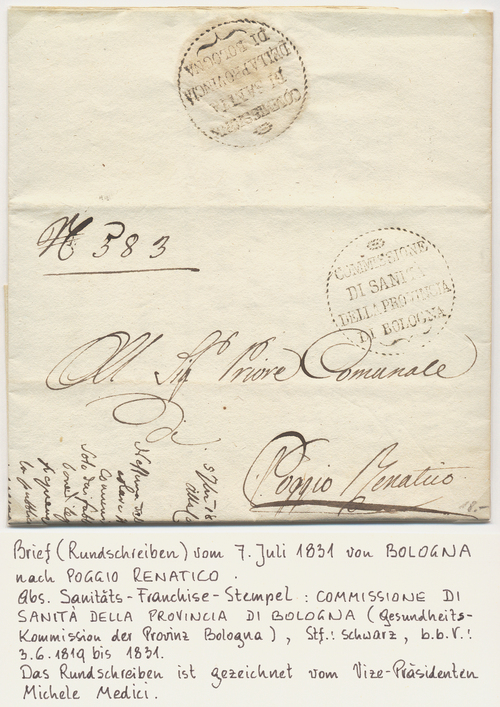 COMMISSIONE
DI SANITÀ
DELLA PROVINCIA
DI BOLOGNA
N 383
COMMISSIONE
DI SANITÀ
DELLA PROVINCIA
DI BOLOGNA
All Sig Priore Comunale
di
Poggio Renatico
18.-
Brief (Rundschreiben) vom 7. Juli 1831 von BOLOGNA
nach POGGIO RENATICO.
Abs. Sanitäts-Franchise-Stempel: COMMISSIONE DI
SANITÀ DELLA PROVINCIA DI BOLOGNA (Gesundheits-
Kommission der Provinz Bologna), Stf.: schwarz, b.b.V.:
3.6.1819 bis 1831.
Das Rundschreiben ist gezeichnet vom Vize-Präsidenten
Michele Medici.